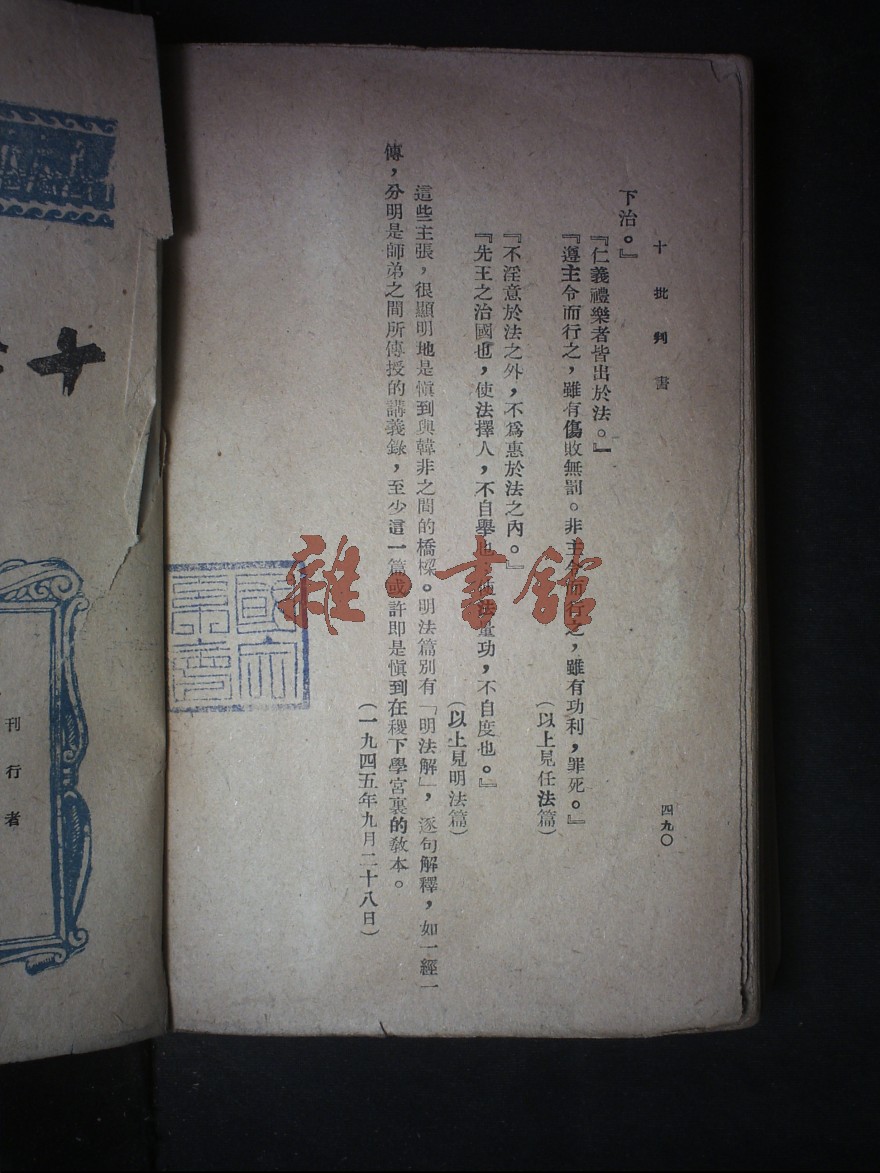 十批判書
四九〇
下治。』
『仁義禮樂者皆出於法。』
『遵主令而行之，雖有傷敗無罰。非主令而行之，雖有功利，罪死。』
（以上見任法篇）
『不淫意於法之外，不爲惠於法之內。』
『先王之治國也，使法擇人，不自舉也。使法量功，不自度也。』
（以上見明法篇）
這些主張，很顯明地是慎到與韓非之間的橋樑。明法篇別有「明法解」，逐句解釋，如一經一
傳，分明是師弟之間所傳授的講義錄，至少這一篇或許即是慎到在稷下學宮裏的教本。
（一九四五年九月二十八日）
雜·書館
十
刊行者